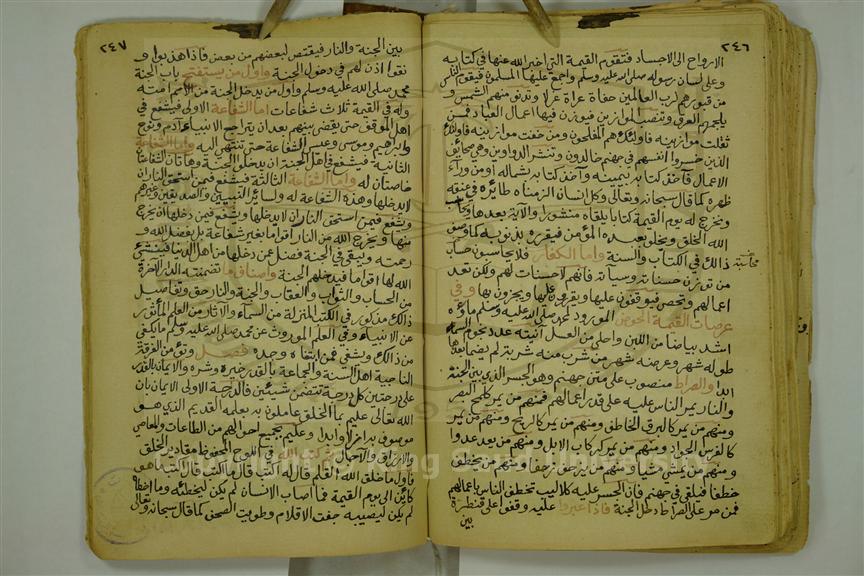 ٢٤٦
الارواح الى الاجساد فتقوم القيمة التي اخبر الله عنها في كتابه
وعلى لسان رسوله صلى الله عليه وسلم واجمع عليها المسلمون فيقوم الناس
من قبورهم لرب العالمين حفاة عراة غرلا وتدنو منهم الشمس و
يلجمهم العرق وتنصب الموازين فيوزن فيها اعمال العباد فمن
ثقلت موازينه فاولئك هم المفلحون ومن خفت موازينه فاولئك
الذين خسروا انفسهم في جهنم خالدون وتنشر الدواوين وهي صحائف
الاعمال فآخذ كتابه بيمينه وآخذ كتابه بشماله او من وراء
ظهره كما قال سبحانه وتعالى وكل انسان الزمناه طائره في عنقه
ونخرج له يوم القيمة كتابا يلقاه منشورا والآية بعدها ويحاسب
الله الخلق ويخلو بعبده المؤمن فيقرره بذنوبه كما وصف
ذالك في الكتاب والسنة واما الكفار فلا يحاسبون حساب
محاسبة
من توزن حسناته وسيئاته فانهم لا حسنات لهم ولكن تعد
اعمالهم وتحصى فيوقفون عليها ويقررون بها ويجزون بها وفي
عرصات القيمة الحوض المورود لمحمد صلى الله عليه وسلم ماؤه
اشد بياضا من اللبن واحلى من العسل آنيته عدد نجوم السماء
طوله شهر وعرضه شهر من شرب منه شربة لم يضما بعدها
ابدا والصراط منصوب على متن جهنم وهو الجسر الذي بين الجنة
والنار يمر الناس عليه على قدر اعمالهم فمنهم من يمر كلمح البصر
ومنهم من يمر كالبرق الخاطف ومنهم من يمر كالريح ومنهم من يمر
كالفرس الجواد ومنهم من يمر كركاب الابل ومنهم من يعدو عدوا
ومنهم من يمشي مشيا ومنهم من يزحف زحفا ومنهم من يخطف
خطفا فيلقى في جهنم فان الجسر عليه كلاليب تخطف الناس باعمالهم
فمن مر على الصراط دخل الجنة فاذا عبروا عليه وقفوا على قنطرة
بين
٢٤٧
بين الجنة والنار فيقتص لبعضهم من بعض فاذا هذبوا و
نقوا اذن لهم في دخول الجنة واول من يستفتح باب الجنة
محمد صلى الله عليه وسلم واول من يدخل الجنة من الامم امته
وله في القيمة ثلاث شفاعات اما الشفاعة الاولى فيشفع في
اهل الموقف حتى يقضى بينهم بعد ان يتراجع الانبياء آدم ونوح
وابراهيم وموسى وعيسى الشفاعة حتى تنتهي اليه واما الشفاعة
الثانية فيشفع في اهل الجنة ان يدخلوا الجنة وهاتان الشفاعتان
خاصتان له واما الشفاعة الثالثة فيشفع فيمن استحق النار ان
لا يدخلها وهذه الشفاعة له ولسائر النبيين والصديقين وغيرهم
ويشفع فيمن استحق النار ان لا يدخلها ويشفع فيمن دخلها ان يخرج
منها ويخرج الله من النار اقواما بغير شفاعة بل بفضل الله و
رحمته ويبقى في الجنة فضل عمن دخلها من اهل الدنيا فينشئ
الله لها اقواما فيدخلهم الجنة واصناف ما تضمنته الدار الآخرة
من الحساب والثواب والعقاب والجنة والنار حق وتفاصيل
ذالك مذكور في الكتب المنزلة من السماء والآثار من العلم المأثور
عن الانبياء وفي العلم الموروث عن محمد صلى الله عليه وسلم ما يكفي
من ذالك ويشفي فمن ابتغاه وجده فصل وتؤمن الفرقة
الناجية اهل السنة والجماعة بالقدر خيره وشره والايمان بالقدر
على درجتين كل درجة تتضمن شيئين فالدرجة الاولى الايمان بان
الله تعالى عليم بما الخلق عاملون به بعلمه القديم الذي هو
موصوف به ازلا وابدا وعليم بجميع احوالهم من الطاعات والمعاصي
والارزاق والآجال ثم كتب الله في اللوح المحفوظ مقادير الخلق
فاول ما خلق الله القلم قال له اكتب قال ما اكتب قال اكتب ما هو
كائن الى يوم القيمة فما اصاب الانسان لم يكن ليخطئه وما اخطأه
لم يكن ليصيبه جفت الاقلام وطويت الصحف كما قال سبحانه وتعالى
Copyright © King Saud University